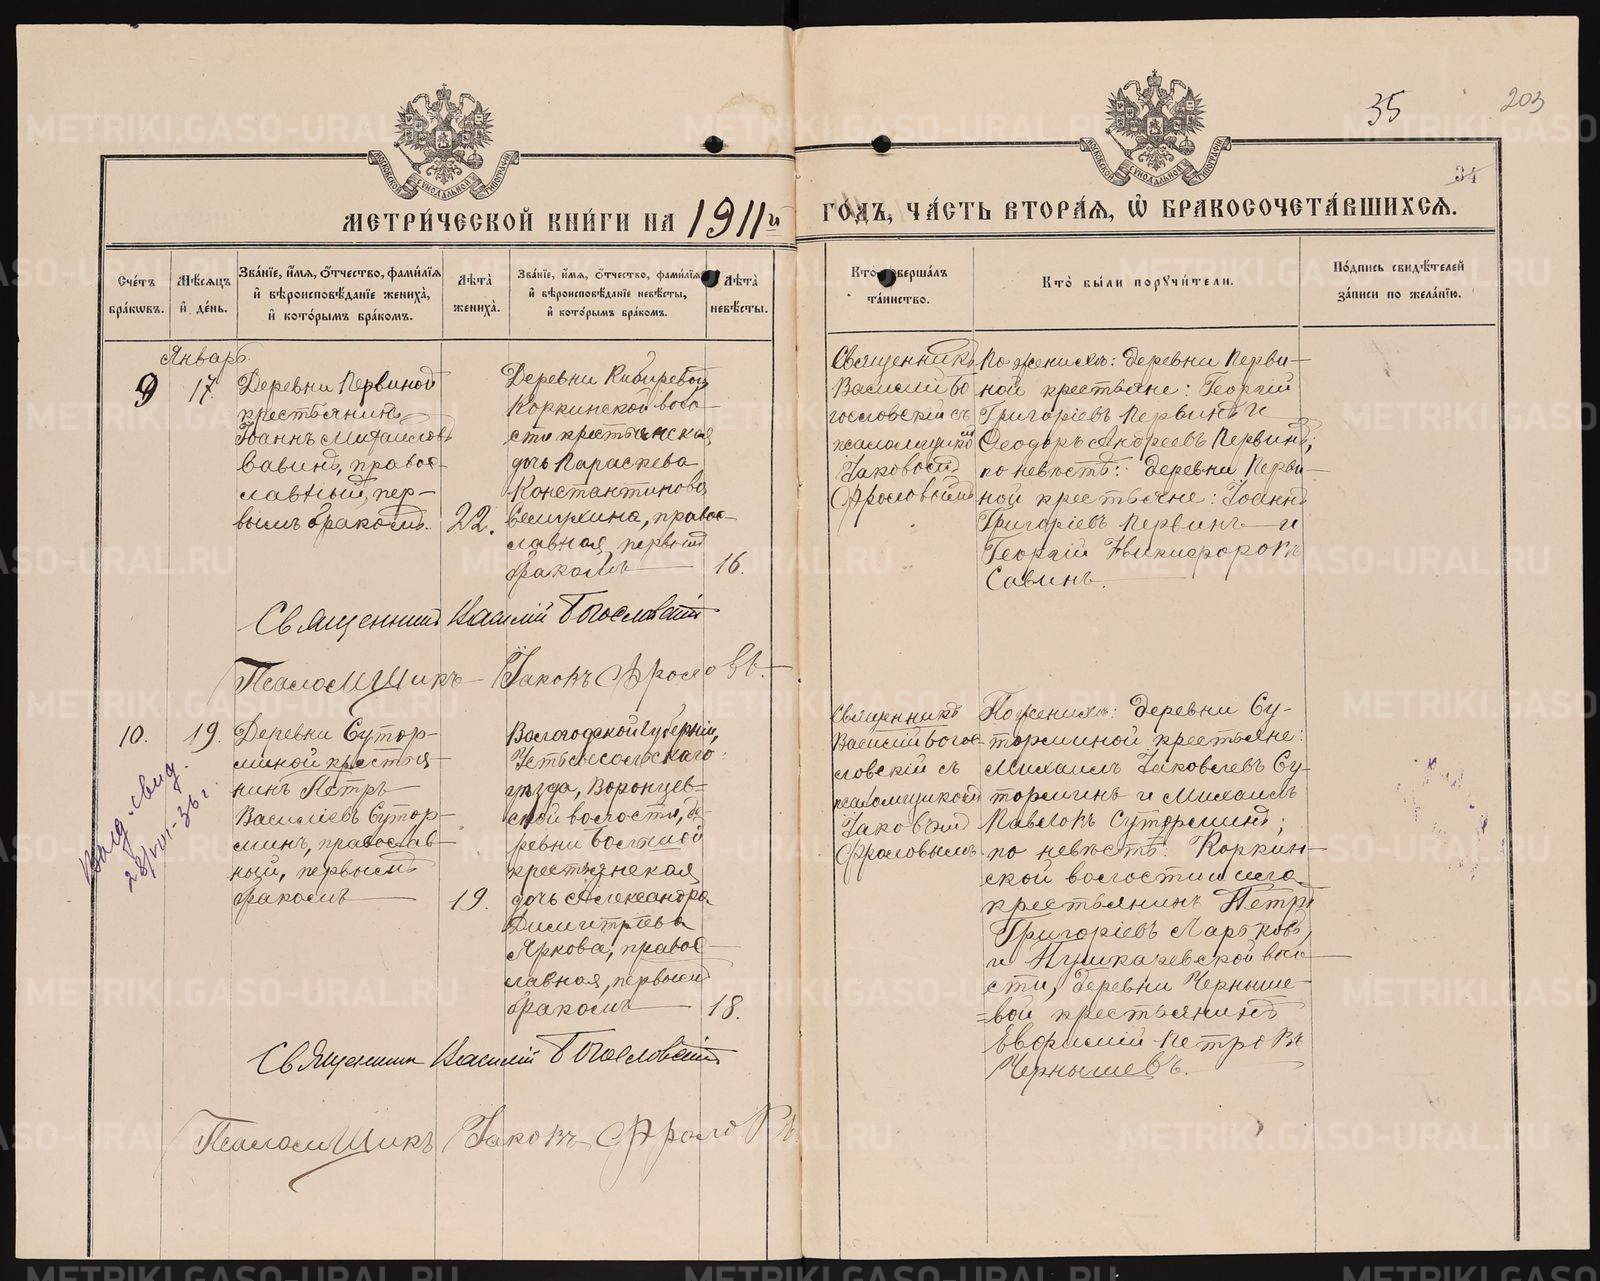 35
203
34
МЕТРИ́ЧЕСКОЙ КНИ́ГИ НА 1911й
ГОДЪ, ЧА́СТЬ ВТОРА́Я, Ѡ БРАКОСОЧЕТА́ВШИХСЯ.
Сче́тъ бра́кѡвъ.
Мѣ́сяцъ и҆ де́нь.
Зва́нїе, и҆́мя, ѻ҆́тчество, фами́лїя
и҆ вѣроисповѣ́данїе жениха̀,
и҆ кото́рымъ бра́комъ.
Лѣ́та̀
жениха̀.
Зва́нїе, и҆́мя, ѻ҆́тчество, фами́лїя
и҆ вѣроисповѣ́данїе невѣ́сты,
и҆ кото́рымъ бра́комъ.
Лѣ́та̀
невѣ́сты.
Кто̀ соверша́лъ
та́инство.
Кто̀ бы́ли порꙋчи́тели.
По́дпись свидѣ́телей
за́писи по жела́нїю.
Январь.
9
17.
Деревни Первиной
крестьянинъ
Іоаннъ Михаиловъ
Савинъ, правос-
лавный, пер-
вымъ бракомъ.
22.
Деревни Кибиревой
Коркинской воло-
сти крестьянская
дочь Параскева
Константинова
православная, первымъ
бракомъ
16.
Священникъ
Василій Бо
гословскій съ
псаломщикомъ
Іаковомъ
Фроловымъ
По женихѣ: деревни Перви-
ной крестьяне: Георгій
Григоріевъ Первинъ и
Ѳеодоръ Андреевъ Первинъ;
по невѣстѣ: деревни Перви-
ной крестьяне: Іоаннъ
Григоріевъ Первинъ и
Георгій Никифоровъ
Савинъ.
Священникъ Василій Богословскій
Псаломщикъ Іаковъ Фроловъ.
10.
19.
Деревни Сутор-
миной крестья-
нинъ Петръ
Василіевъ Сутор-
минъ, православ-
ный, первымъ
бракомъ
19.
Вологодской губерніи,
Устьсысольскаго
уѣзда, Воронцев-
ской волости, де-
ревни
крестьянская
дочь Александра
Димитріева
Яркова, правос-
лавная, первымъ
бракомъ
18.
Священникъ
Василій Богос-
ловскій съ
псаломщикомъ
Іаковомъ
Фроловымъ.
По женихѣ: деревни Су-
торминой крестьяне:
Михаилъ Іаковлевъ Су-
торминъ и Михаилъ
Павловъ Суторминъ;
по невѣстѣ: Коркин-
ской волости и села
крестьянинъ Петръ
Григоріевъ
и Пушкаревской воло-
сти, деревни Черныше-
вой крестьянинъ
Евфимій Петровъ
Чернышевъ.
Выд. свид.
28/VIII-36 г.
Священникъ Василій Богословскій
Псаломщикъ Іаковъ Фроловъ
METRIKI.GASO-URAL.RU